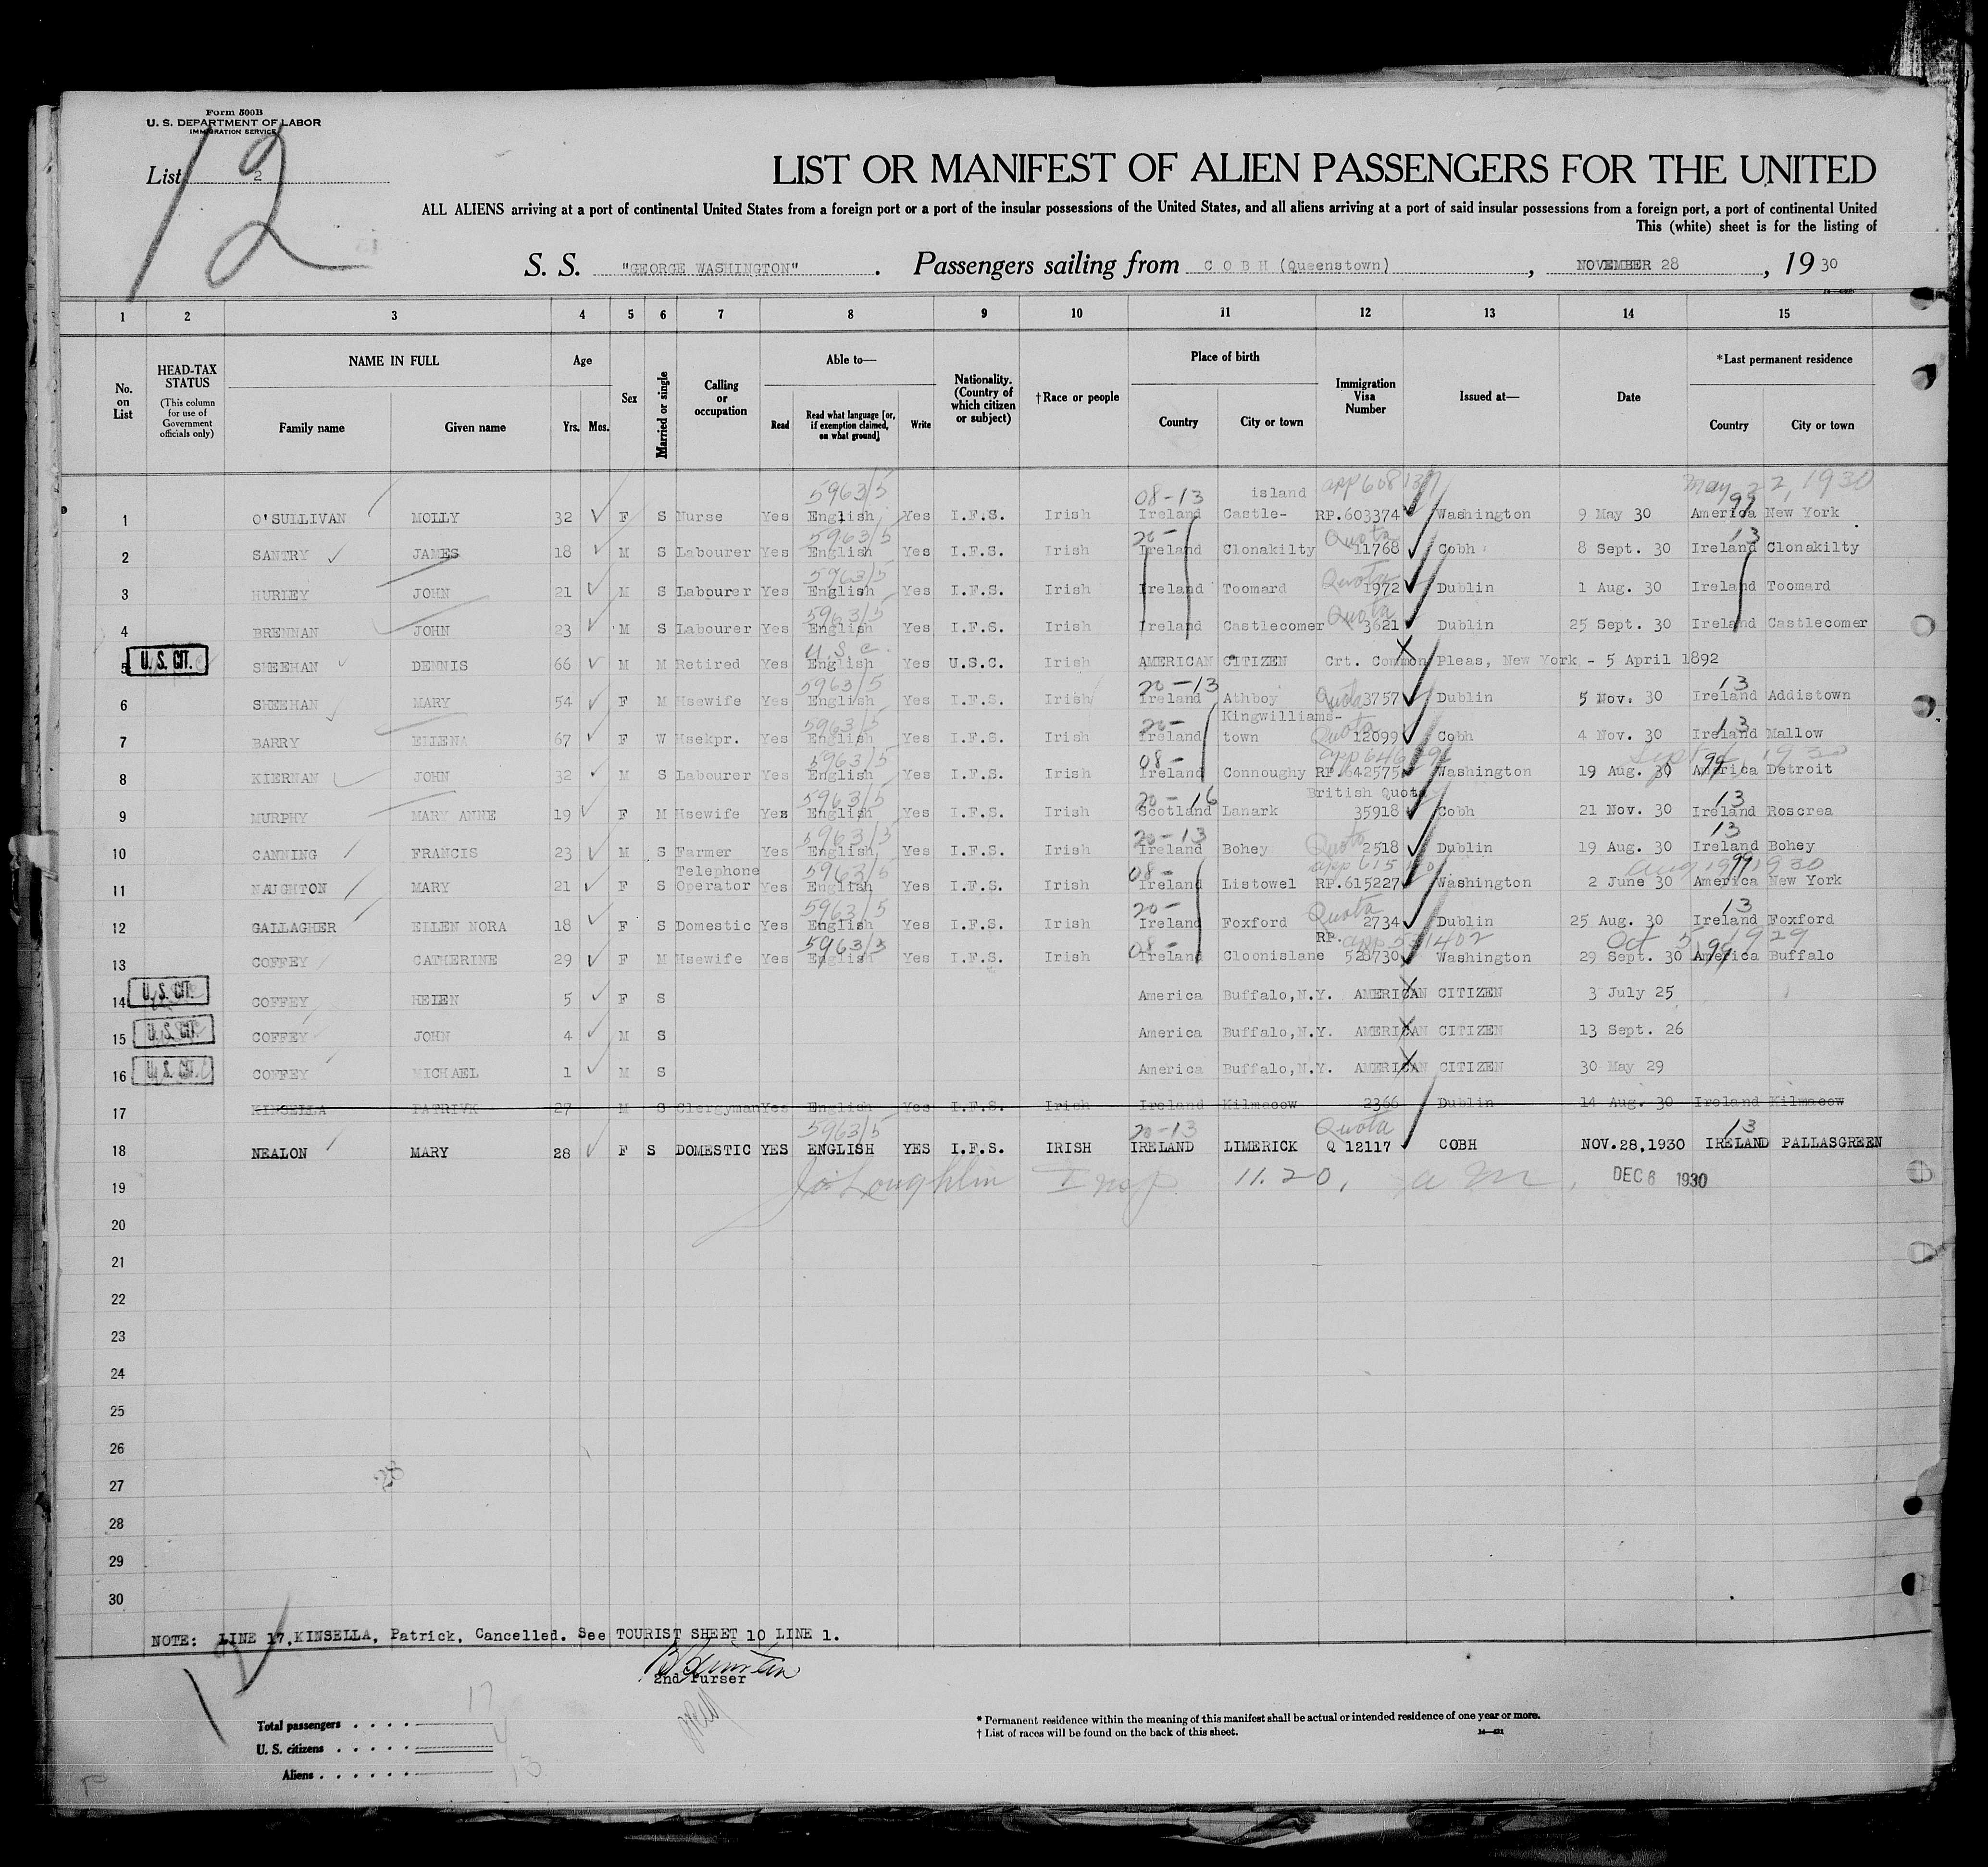 Form 500B
U. S. DEPARTMENT OF LABOR
IMMIGRATION SERVICE
List 2
12
LIST OR MANIFEST OF ALIEN PASSENGERS FOR THE UNITED
ALL ALIENS arriving at a port of continental United States from a foreign port or a port of the insular possessions of the United States, and all aliens arriving at a port of said insular possessions from a foreign port, a port of continental United
This (white) sheet is for the listing of
S. S. "GEORGE WASHINGTON". Passengers sailing from C O B H (Queenstown), NOVEMBER 28, 1930
1 2 3 4 5 6 7 8 9 10 11 12 13 14 15
No. on List
HEAD-TAX STATUS
(This column for use of Government officials only)
NAME IN FULL
Family name Given name
Age
Yrs. Mos.
Sex
Married or single
Calling or occupation
Able to—
Read
Read what language [or, if exemption claimed, on what ground]
Write
Nationality. (Country of which citizen or subject)
†Race or people
Place of birth
Country City or town
Immigration Visa Number
Issued at—
Date
*Last permanent residence
Country City or town
5963/5 08-13 island app 608137 May 22, 1930
99
1 O'SULLIVAN MOLLY 32 F S Nurse Yes English Yes I.F.S. Irish Ireland Castle- RP.603374 Washington 9 May 30 America New York
5963/5 20- Quota 13
2 SANTRY JAMES 18 M S Labourer Yes English Yes I.F.S. Irish Ireland Clonakilty 11768 Cobh 8 Sept. 30 Ireland Clonakilty
5963/5 Quota
3 HURLEY JOHN 21 M S Labourer Yes English Yes I.F.S. Irish Ireland Toomard 1972 Dublin 1 Aug. 30 Ireland Toomard
5963/5 Quota
4 BRENNAN JOHN 23 M S Labourer Yes English Yes I.F.S. Irish Ireland Castlecomer 3621 Dublin 25 Sept. 30 Ireland Castlecomer
U.S.C.
5 U. S. CIT. SHEEHAN DENNIS 66 M M Retired Yes English Yes U.S.C. Irish AMERICAN CITIZEN Crt. Common Pleas, New York - 5 April 1892
5963/5 20-13 Quota 13
6 SHEEHAN MARY 54 F M Hsewife Yes English Yes I.F.S. Irish Ireland Athboy 3757 Dublin 5 Nov. 30 Ireland Addistown
5963/5 20- Kingwilliams- Quota 13
7 BARRY ELLENA 67 F W Hsekpr. Yes English Yes I.F.S. Irish Ireland town 12099 Cobh 4 Nov. 30 Ireland Mallow
5963/5 08- 99
8 KIERNAN JOHN 32 M S Labourer Yes English Yes I.F.S. Irish Ireland Connoughy RP.642575 Washington 19 Aug. 30 America Detroit
5963/5 20-16 British Quota 13
9 MURPHY MARY ANNE 19 F M Hsewife Yes English Yes I.F.S. Irish Scotland Lanark 35918 Cobh 21 Nov. 30 Ireland Roscrea
5963/5 20-13 Quota 13
10 CANNING FRANCIS 23 M S Farmer Yes English Yes I.F.S. Irish Ireland Bohey 2518 Dublin 19 Aug. 30 Ireland Bohey
Telephone 5963/5 08- 99
11 NAUGHTON MARY 21 F S Operator Yes English Yes I.F.S. Irish Ireland Listowel RP.615227 Washington 2 June 30 America New York
5963/5 20- Quota 13
12 GALLAGHER ELLEN NORA 18 F S Domestic Yes English Yes I.F.S. Irish Ireland Foxford 2734 Dublin 25 Aug. 30 Ireland Foxford
5963/5 08- RP. Oct 5, 1929 99
13 COFFEY CATHERINE 29 F M Hsewife Yes English Yes I.F.S. Irish Ireland Cloonislane 528730 Washington 29 Sept. 30 America Buffalo
14 U. S. CIT. COFFEY HELEN 5 F S America Buffalo,N.Y. AMERICAN CITIZEN 3 July 25
15 U. S. CIT. COFFEY JOHN 4 M S America Buffalo,N.Y. AMERICAN CITIZEN 13 Sept. 26
16 U. S. CIT. COFFEY MICHAEL 1 M S America Buffalo,N.Y. AMERICAN CITIZEN 30 May 29
17 KINSELLA PATRIVK 27 M S Clergyman Yes English Yes I.F.S. Irish Ireland Kilmacow 2366 Dublin 14 Aug. 30 Ireland Kilmacow
5963/5 20-13 Quota 13
18 NEALON MARY 28 F S DOMESTIC YES ENGLISH YES I.F.S. IRISH IRELAND LIMERICK Q 12117 COBH NOV.28,1930 IRELAND PALLASGREEN
19 Loughlin Insp 11.20, a m. DEC 6 1930
20
21
22
23
24
25
26
27
28
29
30
NOTE: LINE 17, KINSELLA, Patrick, Cancelled. See TOURIST SHEET 10 LINE 1.
2nd Purser
Total passengers . . . . 17
U. S. citizens . . . . . 4
Aliens . . . . . . 13
* Permanent residence within the meaning of this manifest shall be actual or intended residence of one year or more.
† List of races will be found on the back of this sheet.